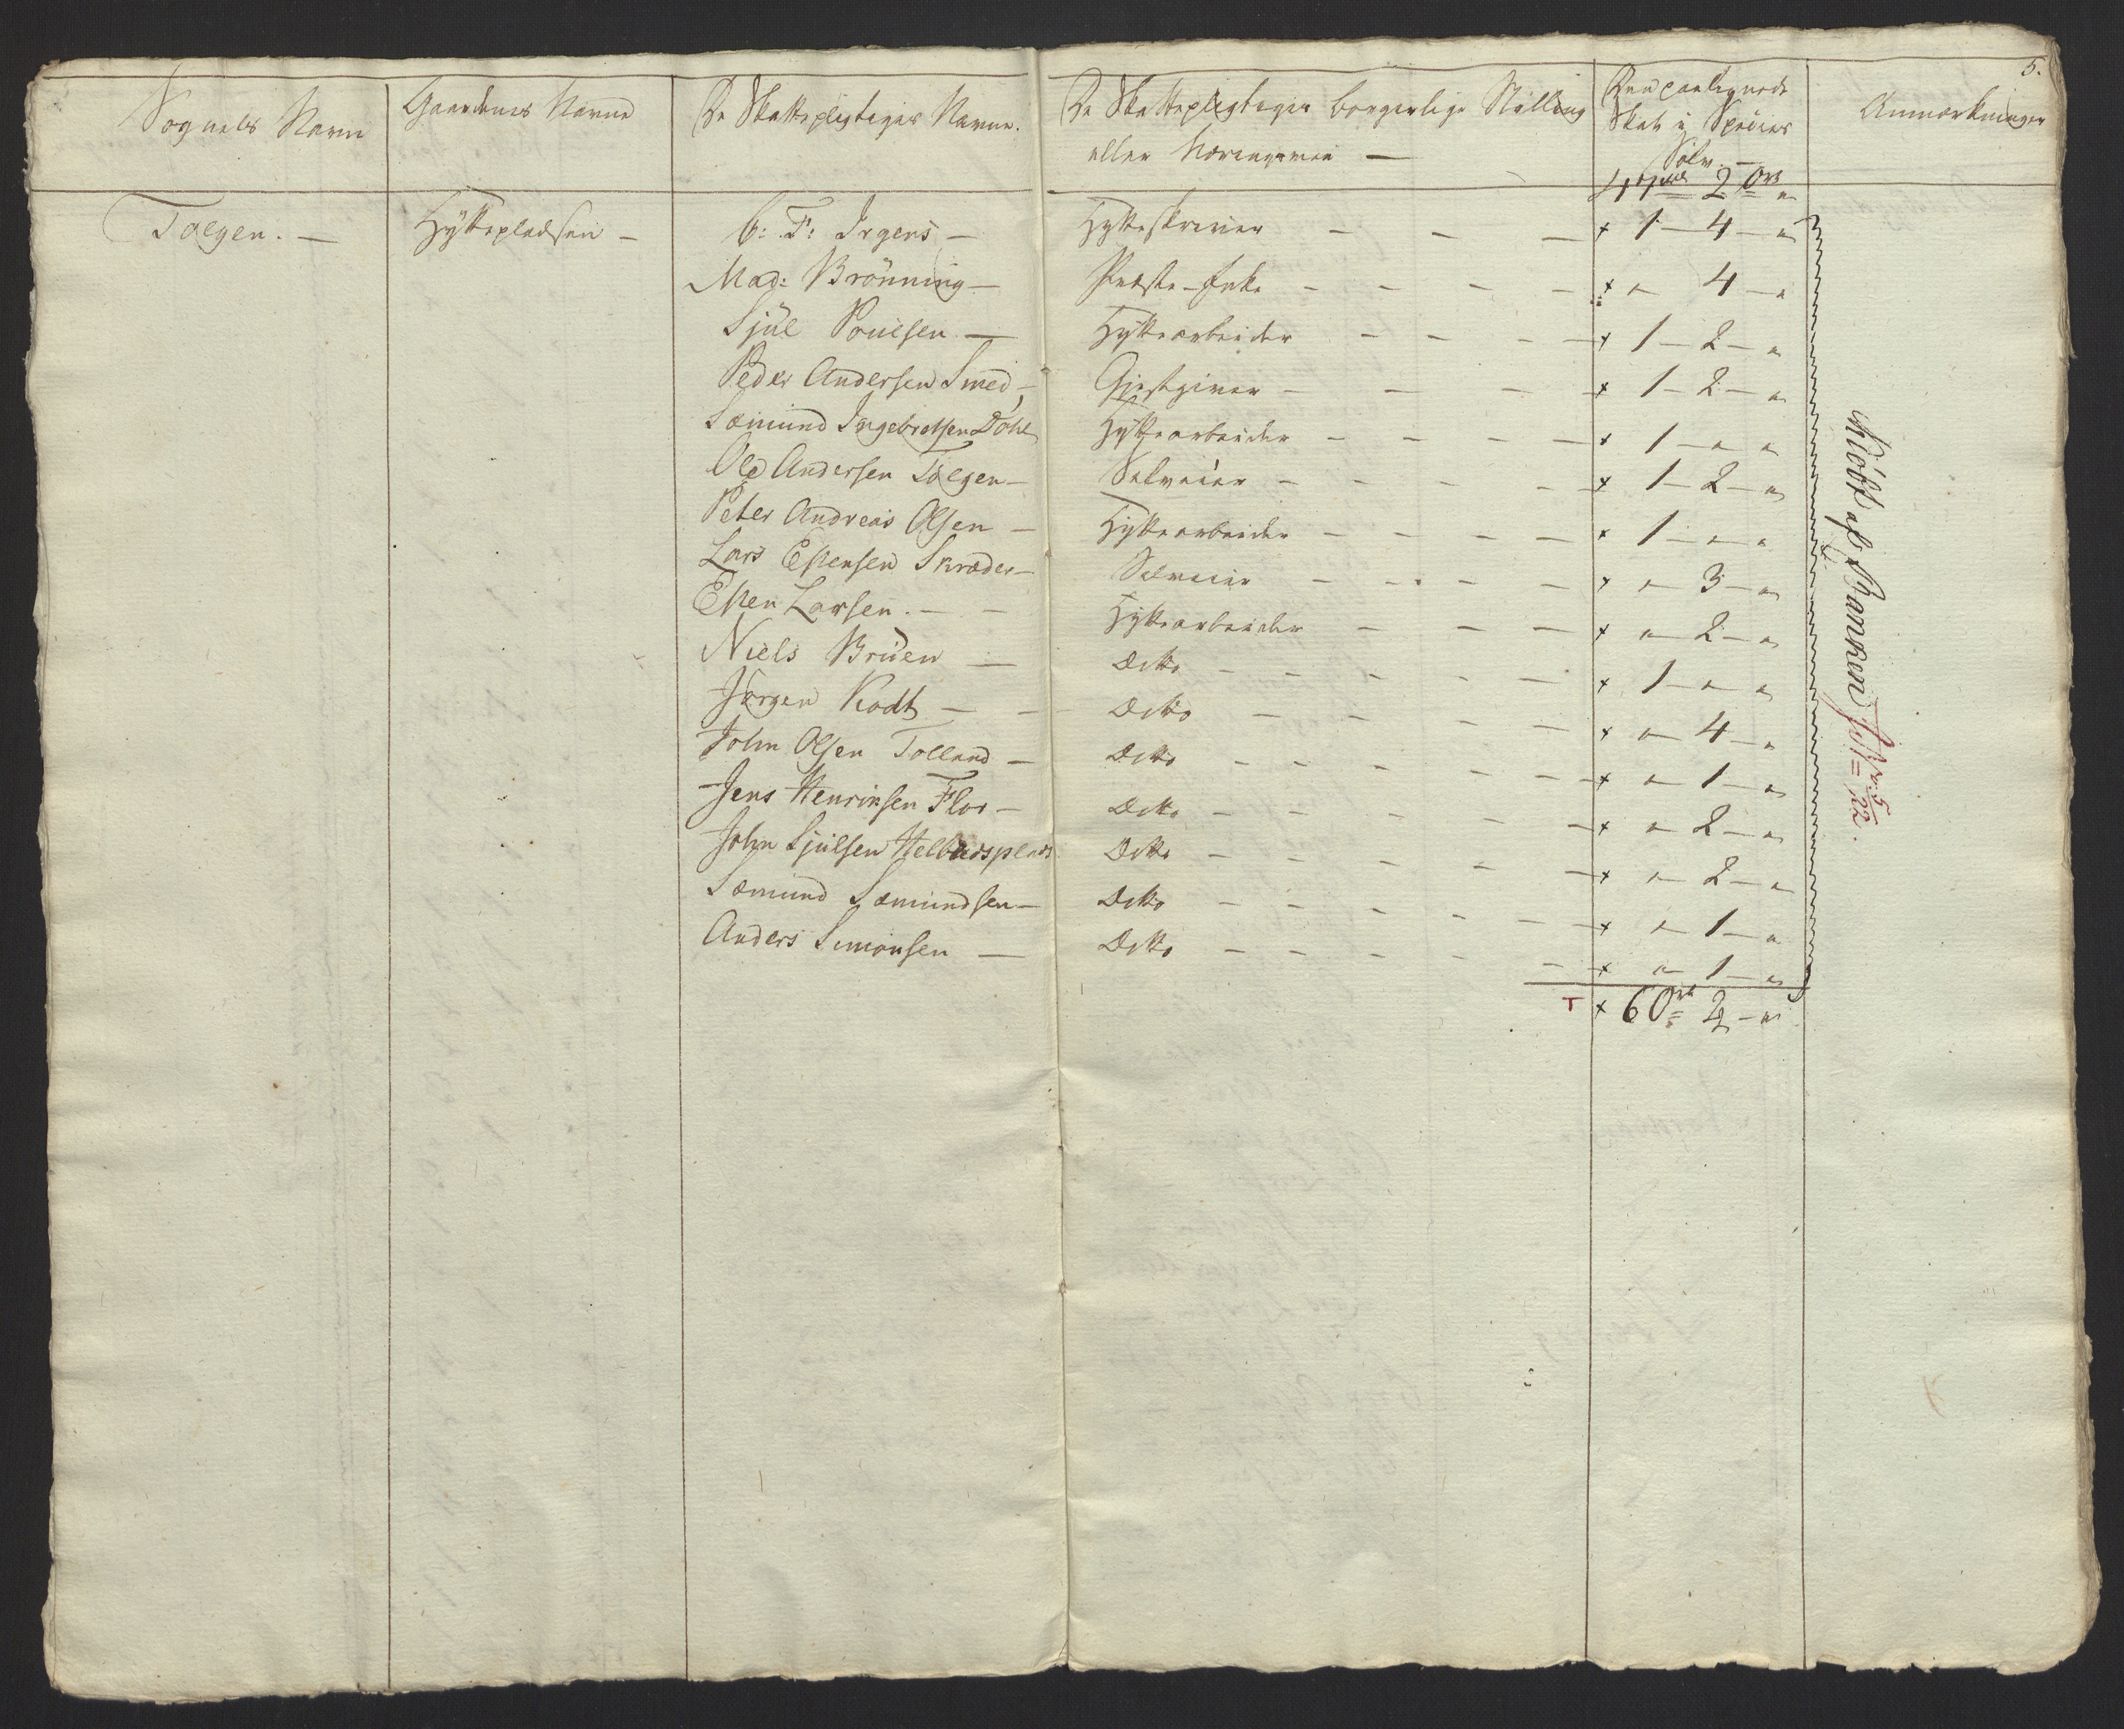 5.
Sognets Navn
Gaardenes Navne
De Skattepligtiges Navne.
De Skattepligtiges borgerlige Stilling
eller Næringsvei —
Den paalignede
Skat i Species
Sölv. —
Anmærkninger
2 Ort
Tolgen. — Hyttepladsen — C: F: Irgens — Hytteskriver — — — 1 — 4 — „
Mad: Brönning — Præste-Enke — — — — „ 4 — „
Sjül Poulsen — Hyttearbeider — — — — 1 — 2 — „
Peder Andersen Smed — Gjestgiver — — — — 1 — 2 — „
Sæmund Ingebretsen Dahl Hyttearbeider — — — — 1 — „ „
Ole Andersen Tolgen — Selveier — — — — 1 — 2 — „
Peter Andreas Olsen — Hyttearbeider — — — — 1 — „ „
Lars Espensen Skræder — Selveier — — — — „ 3 — „
Espen Larsen. — — Hyttearbeider — — — „ 2 — „
Niels Bruen — Ditto — — — — — 1 — „ „
Jörgen Kodt — — Ditto — — — — „ 4 — „
John Olsen Tolland — Ditto — — — — — „ 1 — „
Jens Henriksen Flor — Ditto — — — — — „ 2 — „
John Sjulsen Helbudsplads Ditto — — — — — „ 2 — „
Sæmund Sæmundsen — Ditto — — — — — „ 1 — „
Anders Simonsen — Ditto — — — — — „ 1 — „
60 2 — „
af Banken